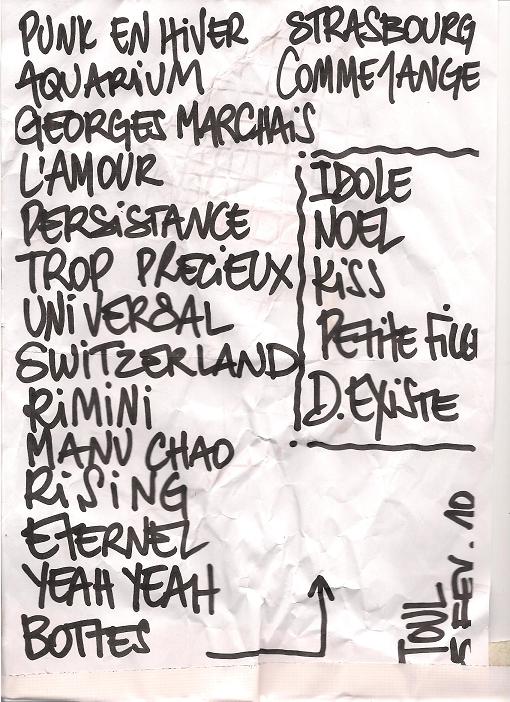 PUNK EN HIVER
AQUARIUM
GEORGES MARCHAIS
L'AMOUR
PERSISTANCE
TROP PRECIEUX
UNIVERSAL
SWITZERLAND
RIMINI
MANU CHAO
RISING
ETERNEL
YEAH YEAH
BOTTES
STRASBOURG
COMME 1 ANGE
IDOLE
NOEL
KISS
PETITE FILLE
D.EXISTE
TOUL
5 FEV. 10